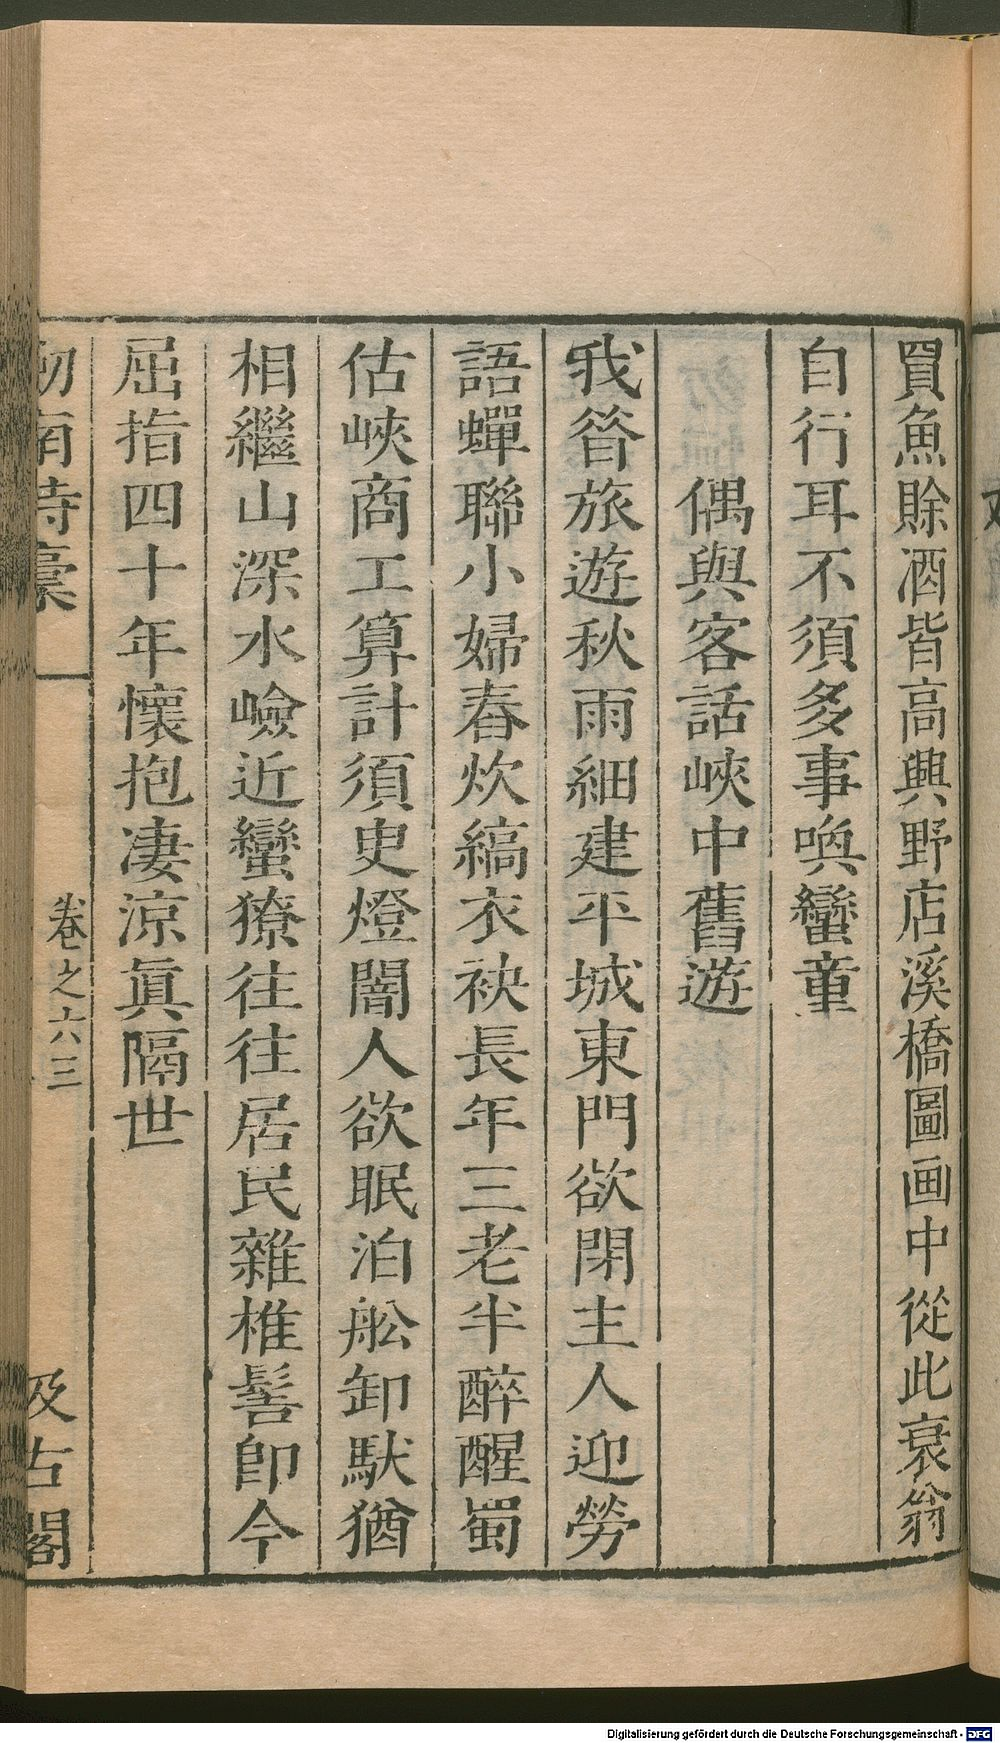 買魚賖酒皆高興野店溪橋圖画中從此衰翁
自行耳不須多事喚蠻童
偶與客話峽中舊遊
我昝旅遊秋雨細建平城東門欲閉主人迎勞
語蟬聯小婦舂炊縞衣袂長年三老半醉醒蜀
估峽商工算計須臾燈闇人欲眠泊舩卸馱猶
相繼山深水嶮近蠻獠往往居民雜椎髻卽今
屈指四十年懷抱凄涼眞隔世
劒南詩稾
卷之六三
汲古閣
Digitalisierung gefördert durch die Deutsche Forschungsgemeinschaft - DFG